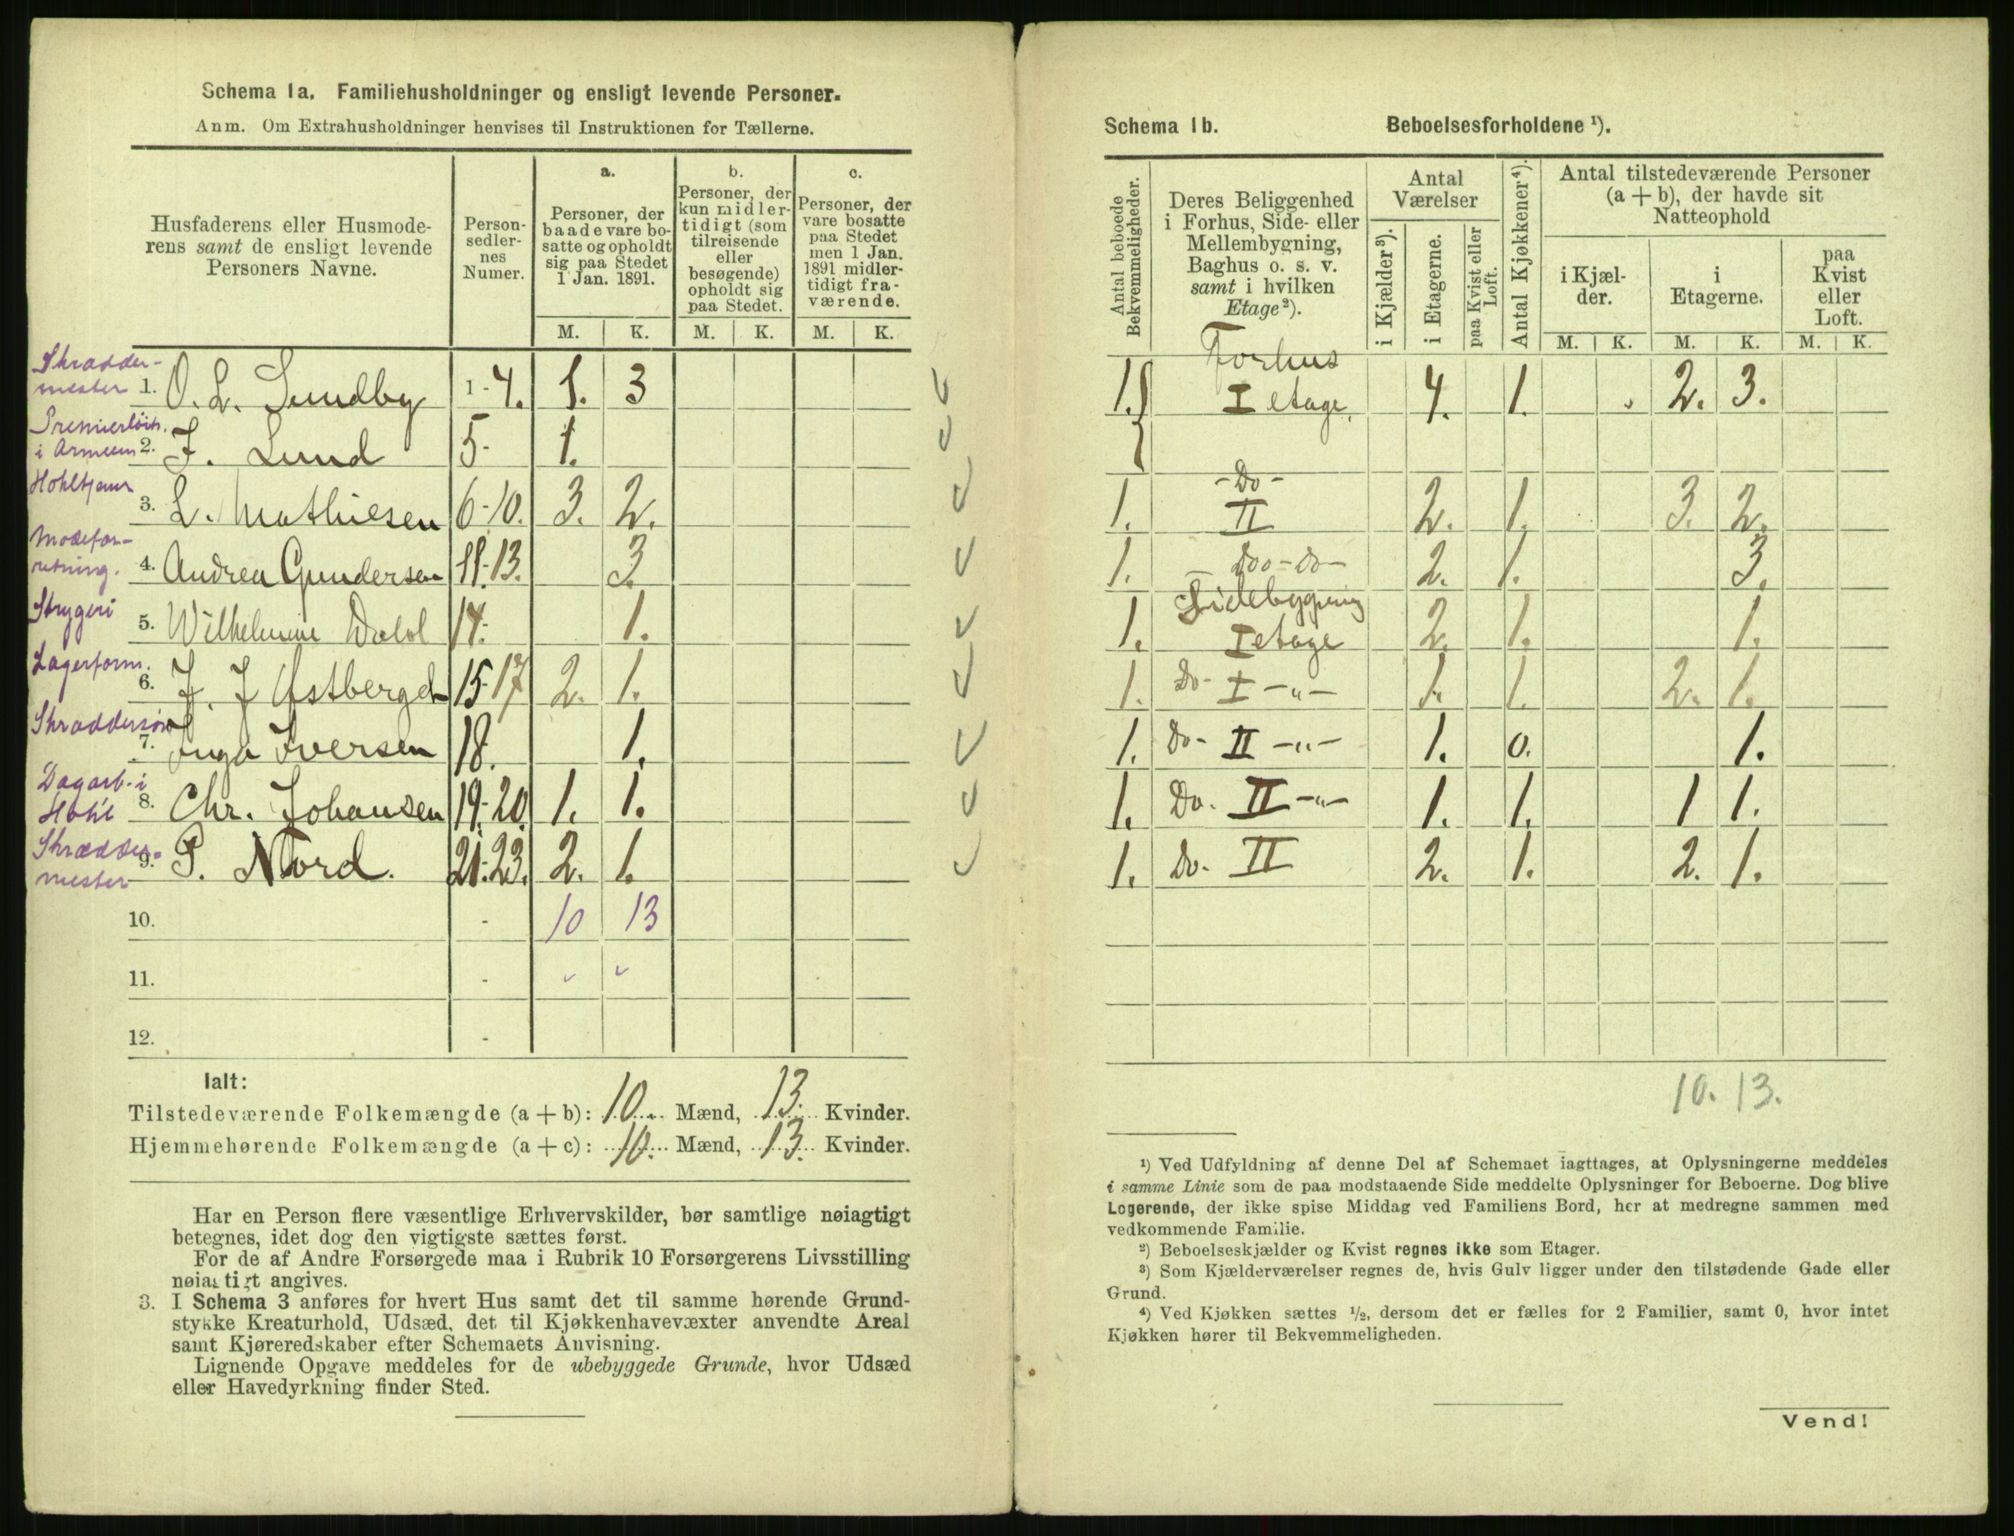 Schema 1 a. Familiehusholdninger og ensligt levende Personer.
Anm. Om Extrahusholdninger henvises til Instruktionen for Tællerne.
Husfaderens eller Husmoderens samt de ensligt levende Personers Navne.
Personsedlernes Numer.
a. Personer, der baade vare bosatte og opholdt sig paa Stedet 1 Jan. 1891.
b. Personer, der kun midlertidigt (som tilreisende eller besøgende) opholdt sig paa Stedet.
c. Personer, der vare bosatte paa Stedet men 1 Jan. 1891 midlertidigt fraværende.
M. K. M. K. M. K.
Skræddermester 1. O. L. Sundby 1-4. 1. 3
Premierløitn. i Armeen 2. J. Lund 5- 1.
3. L. Mathiesen 6-10. 3. 2.
Modeforretning. 4. Andrea Gundersen 11-13. 3.
Strygeri 5. Wilhelmine Dahl 14. 1.
Lagerform. 6. J. J 15-17 2. 1.
7. Inga Iversen 18. 1.
Dagarb. i 8. Chr. Johansen 19-20. 1. 1.
Skræddermester 9. P. Nord. 21-23. 2. 1.
10. - 10 13
11. -
12. -
Ialt:
Tilstedeværende Folkemængde (a + b): 10 Mænd, 13. Kvinder.
Hjemmehørende Folkemængde (a + c): 10. Mænd, 13. Kvinder.
Har en Person flere væsentlige Erhvervskilder, bør samtlige nøiagtigt
betegnes, idet dog den vigtigste sættes først.
For de af Andre Forsørgede maa i Rubrik 10 Forsørgerens Livsstilling
nøiagtigt angives.
3. I Schema 3 anføres for hvert Hus samt det til samme hørende Grund-
stykke Kreaturhold, Udsæd, det til Kjøkkenhavevæxter anvendte Areal
samt Kjøreredskaber efter Schemaets Anvisning.
Lignende Opgave meddeles for de ubebyggede Grunde, hvor Udsæd
eller Havedyrkning finder Sted.
Schema 1 b. Beboelsesforholdene ¹).
Antal beboede Bekvemmeligheder.
Deres Beliggenhed i Forhus, Side- eller Mellembygning, Baghus o. s. v. samt i hvilken Etage²).
Antal Værelser
i Kjælder³).
i Etagerne.
paa Kvist eller Loft.
Antal Kjøkkener⁴).
Antal tilstedeværende Personer (a + b), der havde sit Natteophold
i Kjælder.
i Etagerne.
paa Kvist eller Loft.
M. K. M. K. M. K.
1. Forhus I etage. 4. 1. 2. 3.
1. -Do- II 2. 1. 3. 2.
1. - Do-Do- 2. 1. 3.
1. Sidebygning I etage 2. 1. 1.
1. Do- I -"- 1. 1. 2. 1.
1. Do- II -"- 1. 0. 1.
1. Do. II -"- 1. 1. 1 1.
1. Do. II 2. 1. 2. 1.
10. 13.
¹) Ved Udfyldning af denne Del af Schemaet iagttages, at Oplysningerne meddeles
i samme Linie som de paa modstaaende Side meddelte Oplysninger for Beboerne. Dog blive
Logerende, der ikke spise Middag ved Familiens Bord, her at medregne sammen med
vedkommende Familie.
²) Beboelseskjælder og Kvist regnes ikke som Etager.
³) Som Kjælderværelser regnes de, hvis Gulv ligger under den tilstødende Gade eller
Grund.
⁴) Ved Kjøkken sættes ½, dersom det er fælles for 2 Familier, samt 0, hvor intet
Kjøkken hører til Bekvemmeligheden.
Vend!